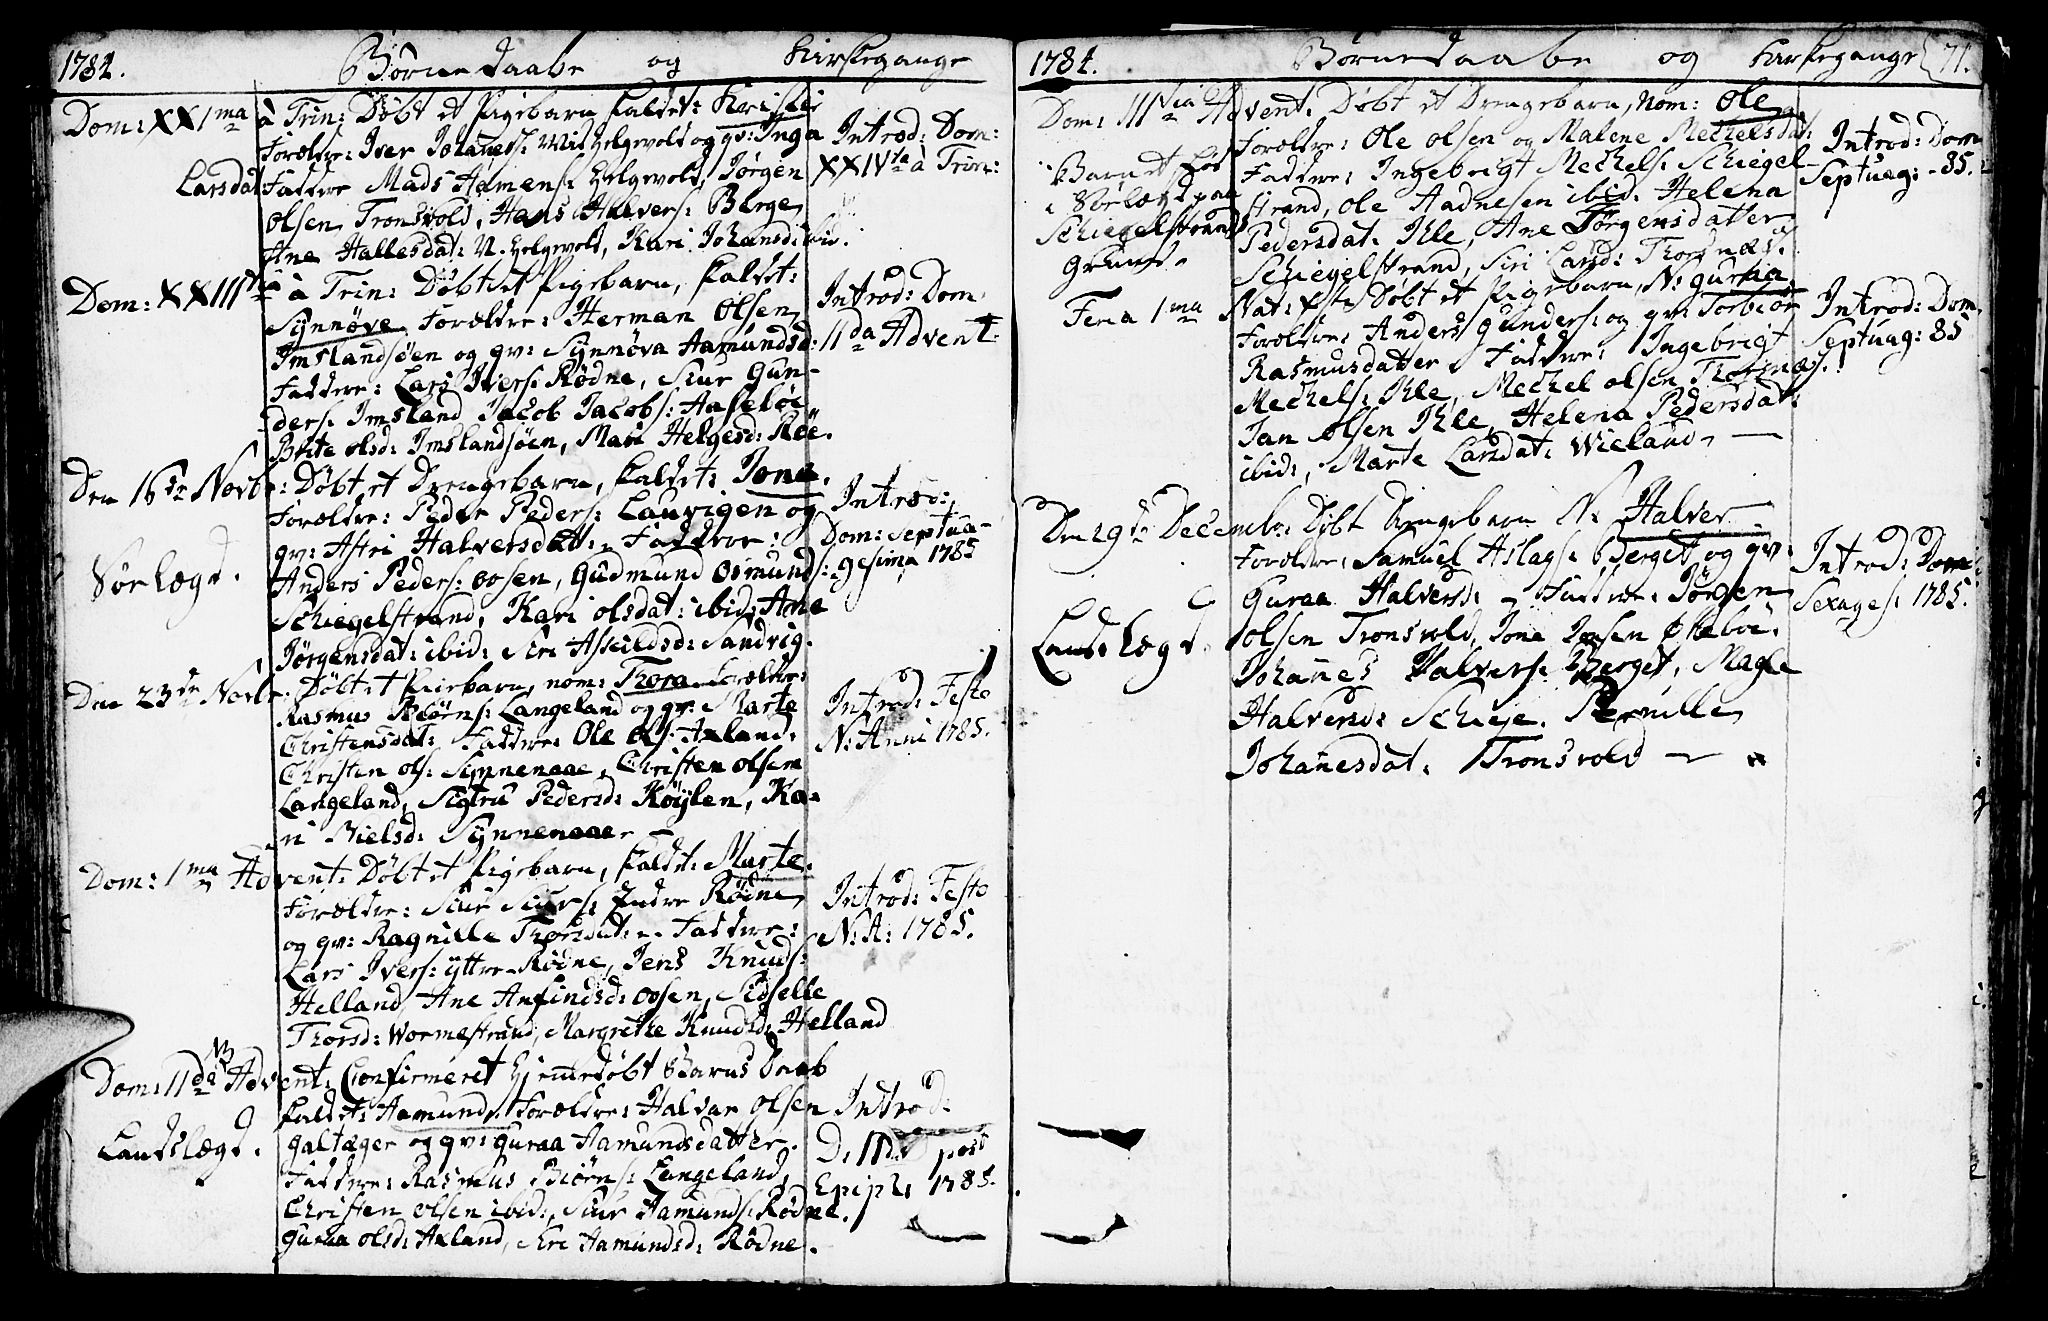 1784. Börnedaabe og Kirkegange
Dom: XX1ma à Trin: Döbt et Pigebarn kaldet:
Forældre: Iver Johanes: Helgevold og qv: Inga
Larsdat. Faddere Mads Helgevold, Jörgen
Olsen Tronsvold, Hans Halvers: Berge,
Ane Hallesdat: N. Helgevold, Kari Johansd: ibid.
Introd: Dom:
XXIVta à Trin:
Dom: XXIIIa à Trin: Döbt et Pigebarn, kaldet:
Synnöve Forældre: Herman Olsen
Imslandsöen og qv: Synnöva Aamundsd:
Faddere: Lars Ivers: Rödne, Siur Gun-
ders: Imsland, Jacob Jacobs:
Brite olsd: Imslandsöen, Mari Helgesd: Röe.
Introd: Dom
IIda Advent.
Den 16de Novbr: Döbt et Drengebarn, kaldet: Jone.
Forældre: Peder Peders: Lauvigen og
qv: Astri Halversdat: Faddere:
Sörlægd. Anders Peders: oosen, Gudmund Osmunds:
Schiegelstrand, Kari olsdat: ibid: Ane
Jörgensdat: ibid: Siri Askildsd: Sandvig.
Introd:
Dom: Septua-
gesima 1785
Den 23de Novbr. Döbt et Pigebarn, nom: Thora Forældre:
Rasmus Biörns: Langeland og qv: Marte
Christensdat: Faddere: Ole Ols: Axland:
Christen ols: Synnenaae, Christen olsen
Langeland, Sigtru Pedersd: Köylen, Ka-
ri Nielsd: Synnenaae. —
Introd: Festo
N: Anni 1785.
Dom: 1ma Advent: Döbt et Pigebarn, kaldet: Marte.
Forældre: Siur Siurs: Indre Rödne
og qv: Ragnille Thorsdat: Faddere:
Lars Ivers: yttre Rödne, Jens Knuds:
Helland, Ane Anfindsd: oosen, Sidselle
Thorsd: Wormestrand, Margrethe Knudsd: Helland
Introd: Festo
N: A: 1785.
Dom: IIda Advent: Confirmeret Hjemmedöbt Barns Daab
kaldet: Aamund. Forældre: Halvar Olsen
Landslægd. Galtager og qv: Guraa Aamundsdatter.
Faddere: Rasmus Biörns: Langeland,
Christen olsen ibid:, Siur Aamunds: Rödne.
Guraa olsd: Axland, Siri Aamundsd: Rödne.
Introd:
D: IIda post
Epiph: 1785.
1784. Börnedaabe og Kirkegange 71.
Dom: IIItia Advent: Döbt et Drengebarn, nom: Ole
Forældre: Ole Olsen og Malene Mechelsdat:
Barnet föd Faddere: Ingebrigt Mechels: Schiegel-
i Sörlægd paa strand, Ole Aadnesen ibid. Helena
Schiegelstrands Pedersdat. Ihle, Ane Törgensdatter
Grund. Schiegelstrand, Siri Larsd: Thorsnæs.
Introd: Dom
Septuag: -85.
Feria 1ma Nat: Döbt et Pigebarn, N: Guraa
Forældre: Anders Gunders: og qv: Torbiör
Rasmusdatter. Faddere: Ingebrigt
Mechels: Ihle, Mechel olsen Thorsnæs.
Jan olsen Ihle, Helena Pedersdat:
ibid:, Marte Larsdat: Wieland. —
Introd: Dom.
Septuag: 85
Den 29de Decembr: Döbt Drengebarn N: Halver
Forældre: Samuel Aslags: Berget og qv:
Guraa Halversd: — Faddere: Jörgen
Landslægd. olsen Tronsvold, Jone
Johanes Halvers: Berget, Magle
Halversd: Schieje. Pernille
Johanesdat: Tronsvold —
Introd: Dom:
Sexages: 1785.